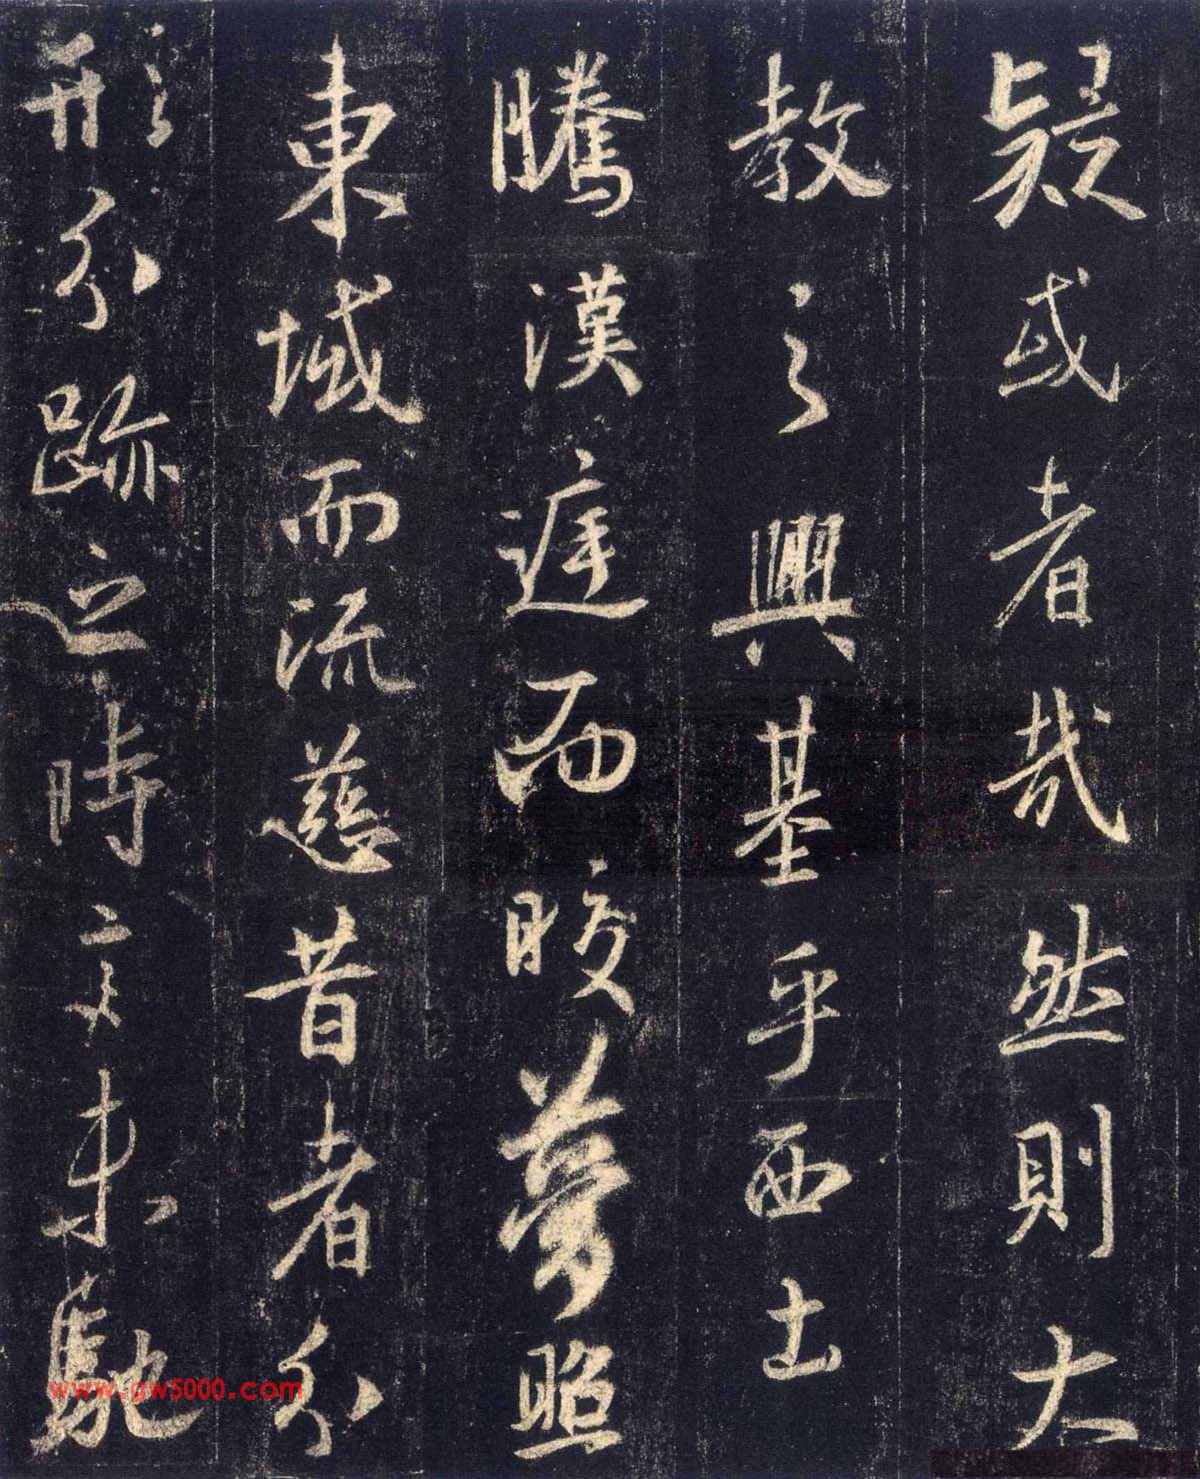 疑或者哉然則大
教之興基乎西土
騰漢庭而晈夢照
東域而流慈昔者分
形分跡之時言未馳
www.gw5000.com